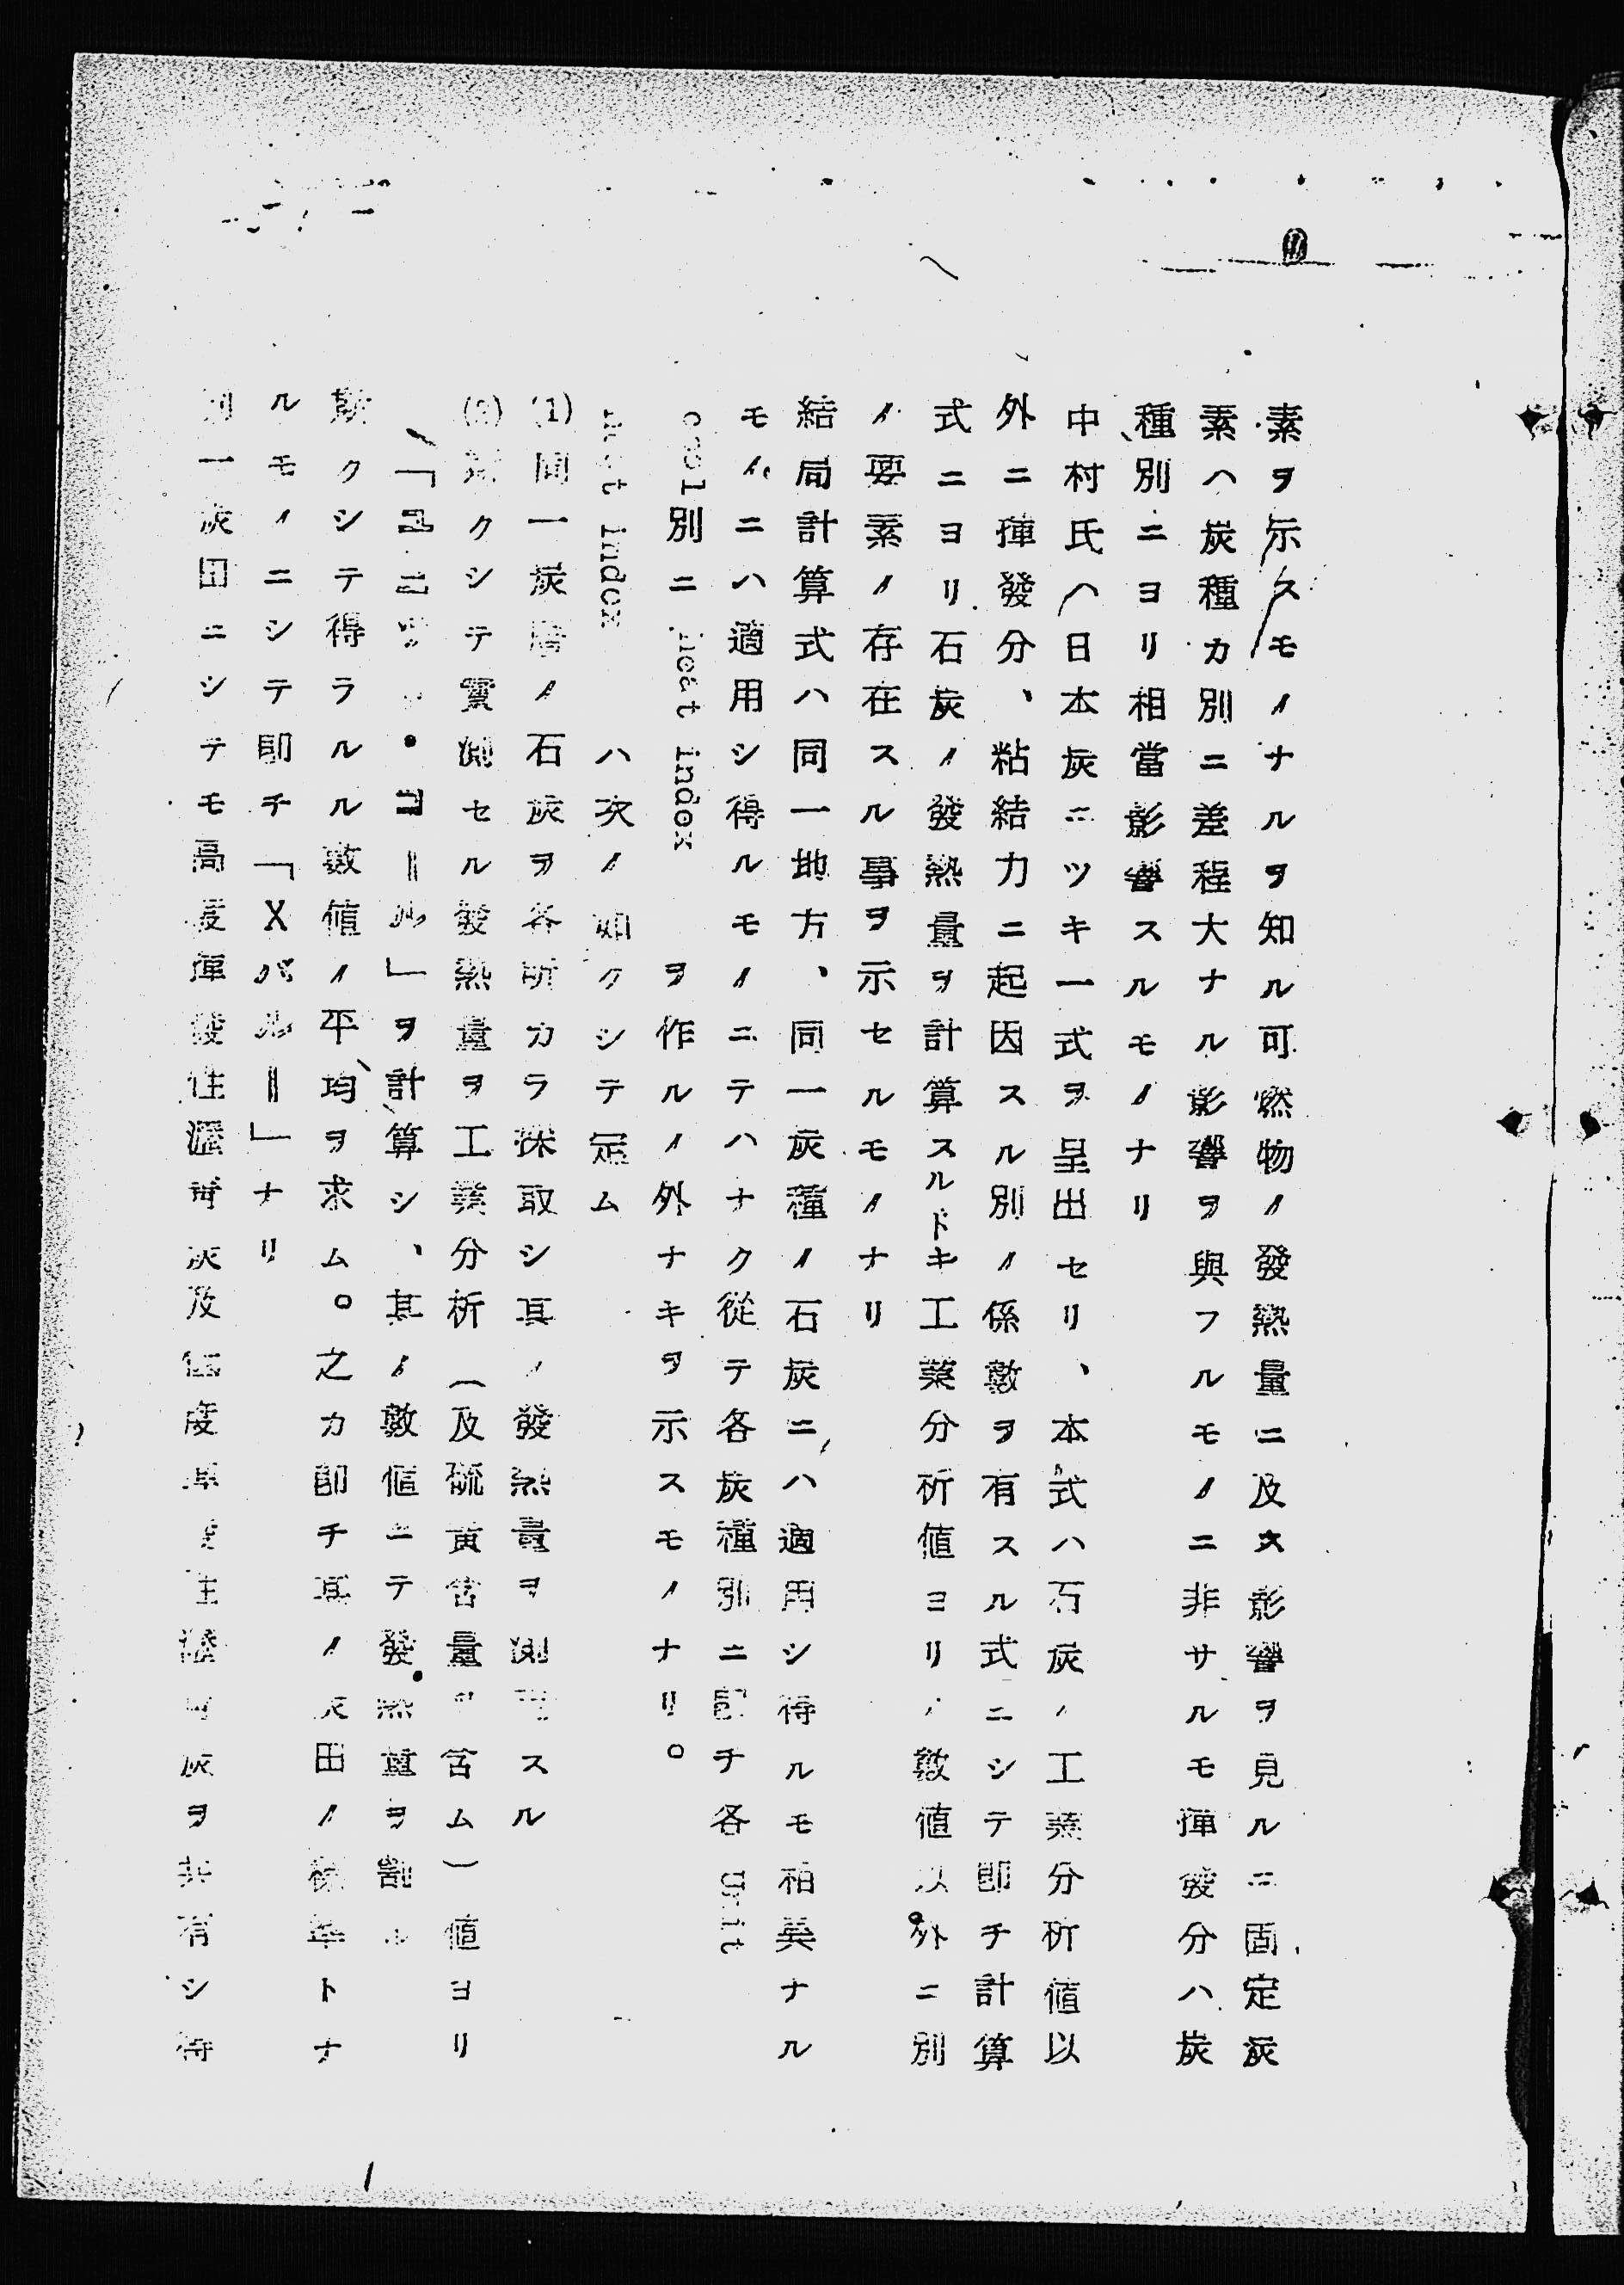 素ヲ示スモノナルヲ知ル可燃物ノ發熱量ニ及ス影響ヲ見ルニ固定炭
素ハ炭種カ別ニ差程大ナル影響ヲ與フルモノニ非サルモ揮發分ハ炭
種別ニヨリ相當影響スルモノナリ
中村氏ハ日本炭ニツキ一式ヲ呈出セリ、本式ハ石炭ノ工業分析値以
外ニ揮發分、粘結力ニ起因スル別ノ係數ヲ有スル式ニシテ即チ計算
式ニヨリ石炭ノ發熱量ヲ計算スルトキ工業分析値ヨリノ數値以外ニ別
ノ要素ノ存在スル事ヲ示セルモノナリ
結局計算式ハ同一地方、同一炭種ノ石炭ニハ適用シ得ルモ相異ナル
モノニハ適用シ得ルモノニテハナク從テ各炭種別ニ即チ各 Unit
coal別ニ Heat index ヲ作ルノ外ナキヲ示スモノナリ。
Heat index ハ次ノ如クシテ定ム
(1)同一炭層ノ石炭ヲ各所カラ採取シ其ノ發熱量ヲ測定スル
(2)斯クシテ實測セル發熱量ヲ工業分析(及硫黄含量ヲ含ム)値ヨリ
「ユニット・コール」ヲ計算シ、其ノ數値ニテ發熱量ヲ割ル
斯クシテ得ラルル數値ノ平均ヲ求ム。之カ即チ其ノ炭田ノ標準トナ
ルモノニシテ即チ「Xバルー」ナリ
別一炭田ニシテモ高度揮發性瀝青炭及低度揮發性瀝青炭ヲ共有シ得